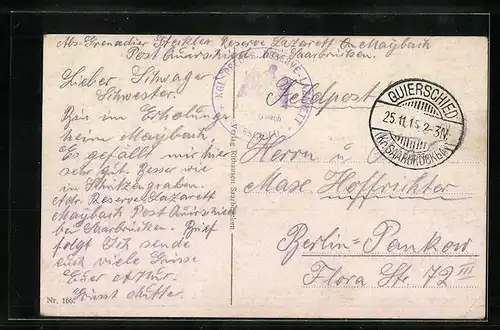 Abs. Grenadier Reserve Lazarett Maybach
Post Quirschied b. Saarbrücken.
Lieber Schwager
Schwester.
Bin im Erholungs
heim Maybach.
Es gefällt mir hier
sehr gut. Besser wie
im Schützengraben.
Adr. Reserve Lazarett
Maybach Post Quirschied
bei Saarbrücken. Brief
folgt Ich sende
euch viele Grüsse
Euer Arthur.
Grüsst Mutter.
Nr. 166.
Verlag Saarbrücken
RESERVE-LAZARETT
Feldpost
QUIERSCHIED
25.11.15 2-3N
(Kr. SAARBRÜCKEN)
Herrn u.
Max Hoffrichter
Berlin=Pankow
Flora Str. 72 III